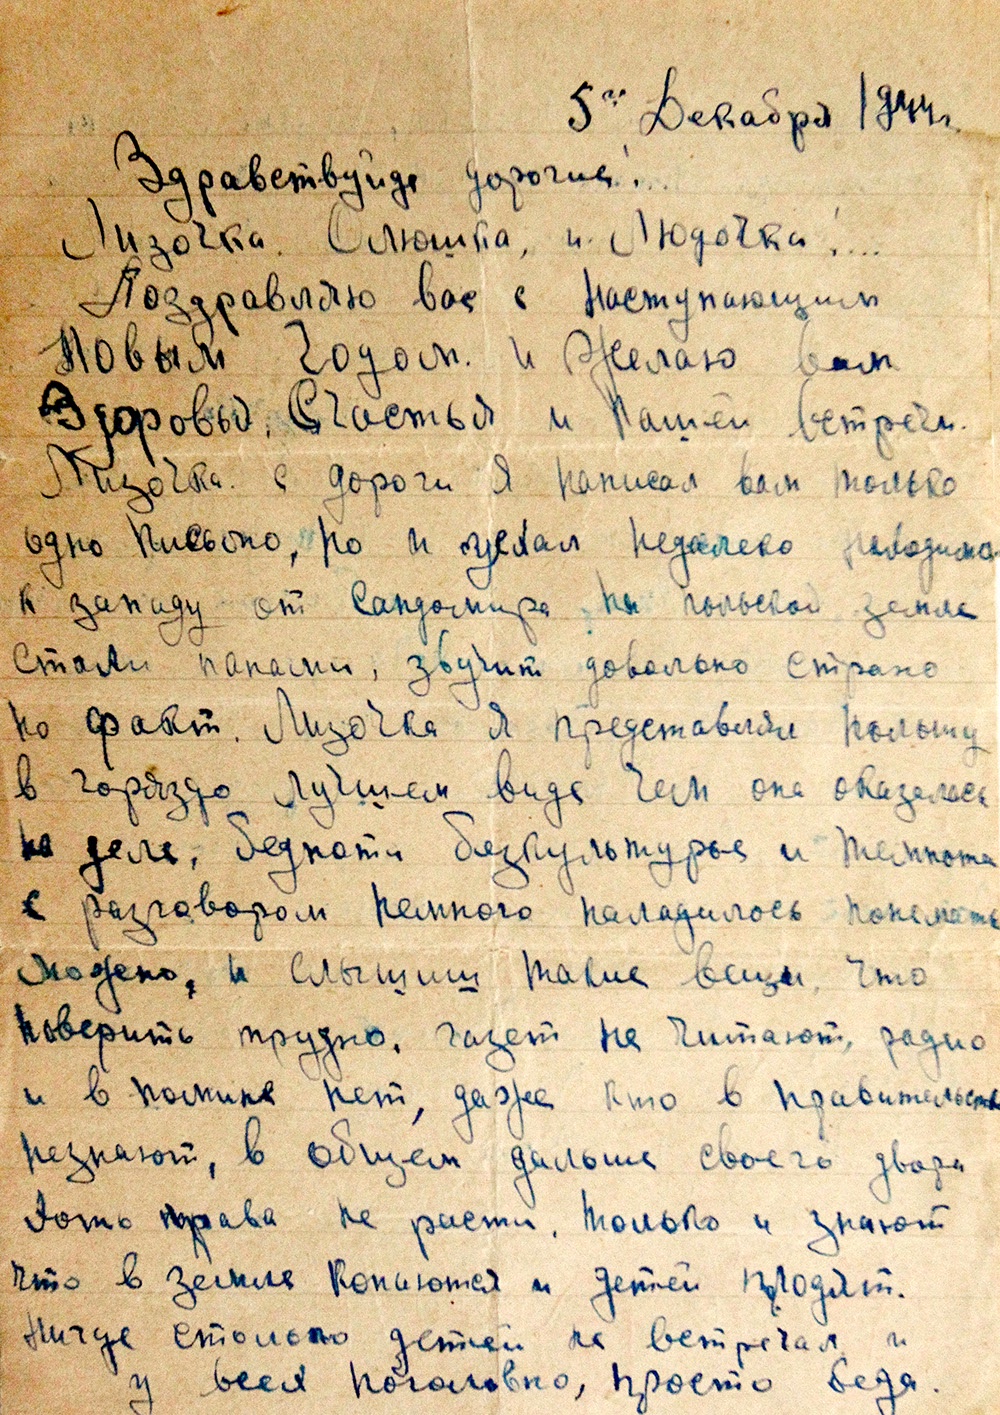 5го Декабря 1944г.
Здравствуйде дорогие!...
Лизочка, Олюшка, и Людочка!....
Поздравляю вас с наступающим
Новым Годом. и Желаю вам
Здоровья, Счастья и нашей встречи.
Лизочка. с дороги Я написал вам только
одно письмо, но и уехал недалеко находимся
к западу от Сандомира на польской земле
стали панами, звучит довольно страно
но факт. Лизочка я представлял польшу
в гораздо лучшем виде чем она оказалась
на деле, беднота безкультурье и темнота
с разговором немного наладилось понемать
можно, и слышиш такие вещи, что
поверить трудно. газет не читают, радио
и в помине нет, даже кто в правительстве
незнают, в общем дальше своего двора
хоть трава не расти, только и знают
что в земле копаются и детей плодят.
Нигде столько детей не встречал и
у всех поголовно, просто беда.